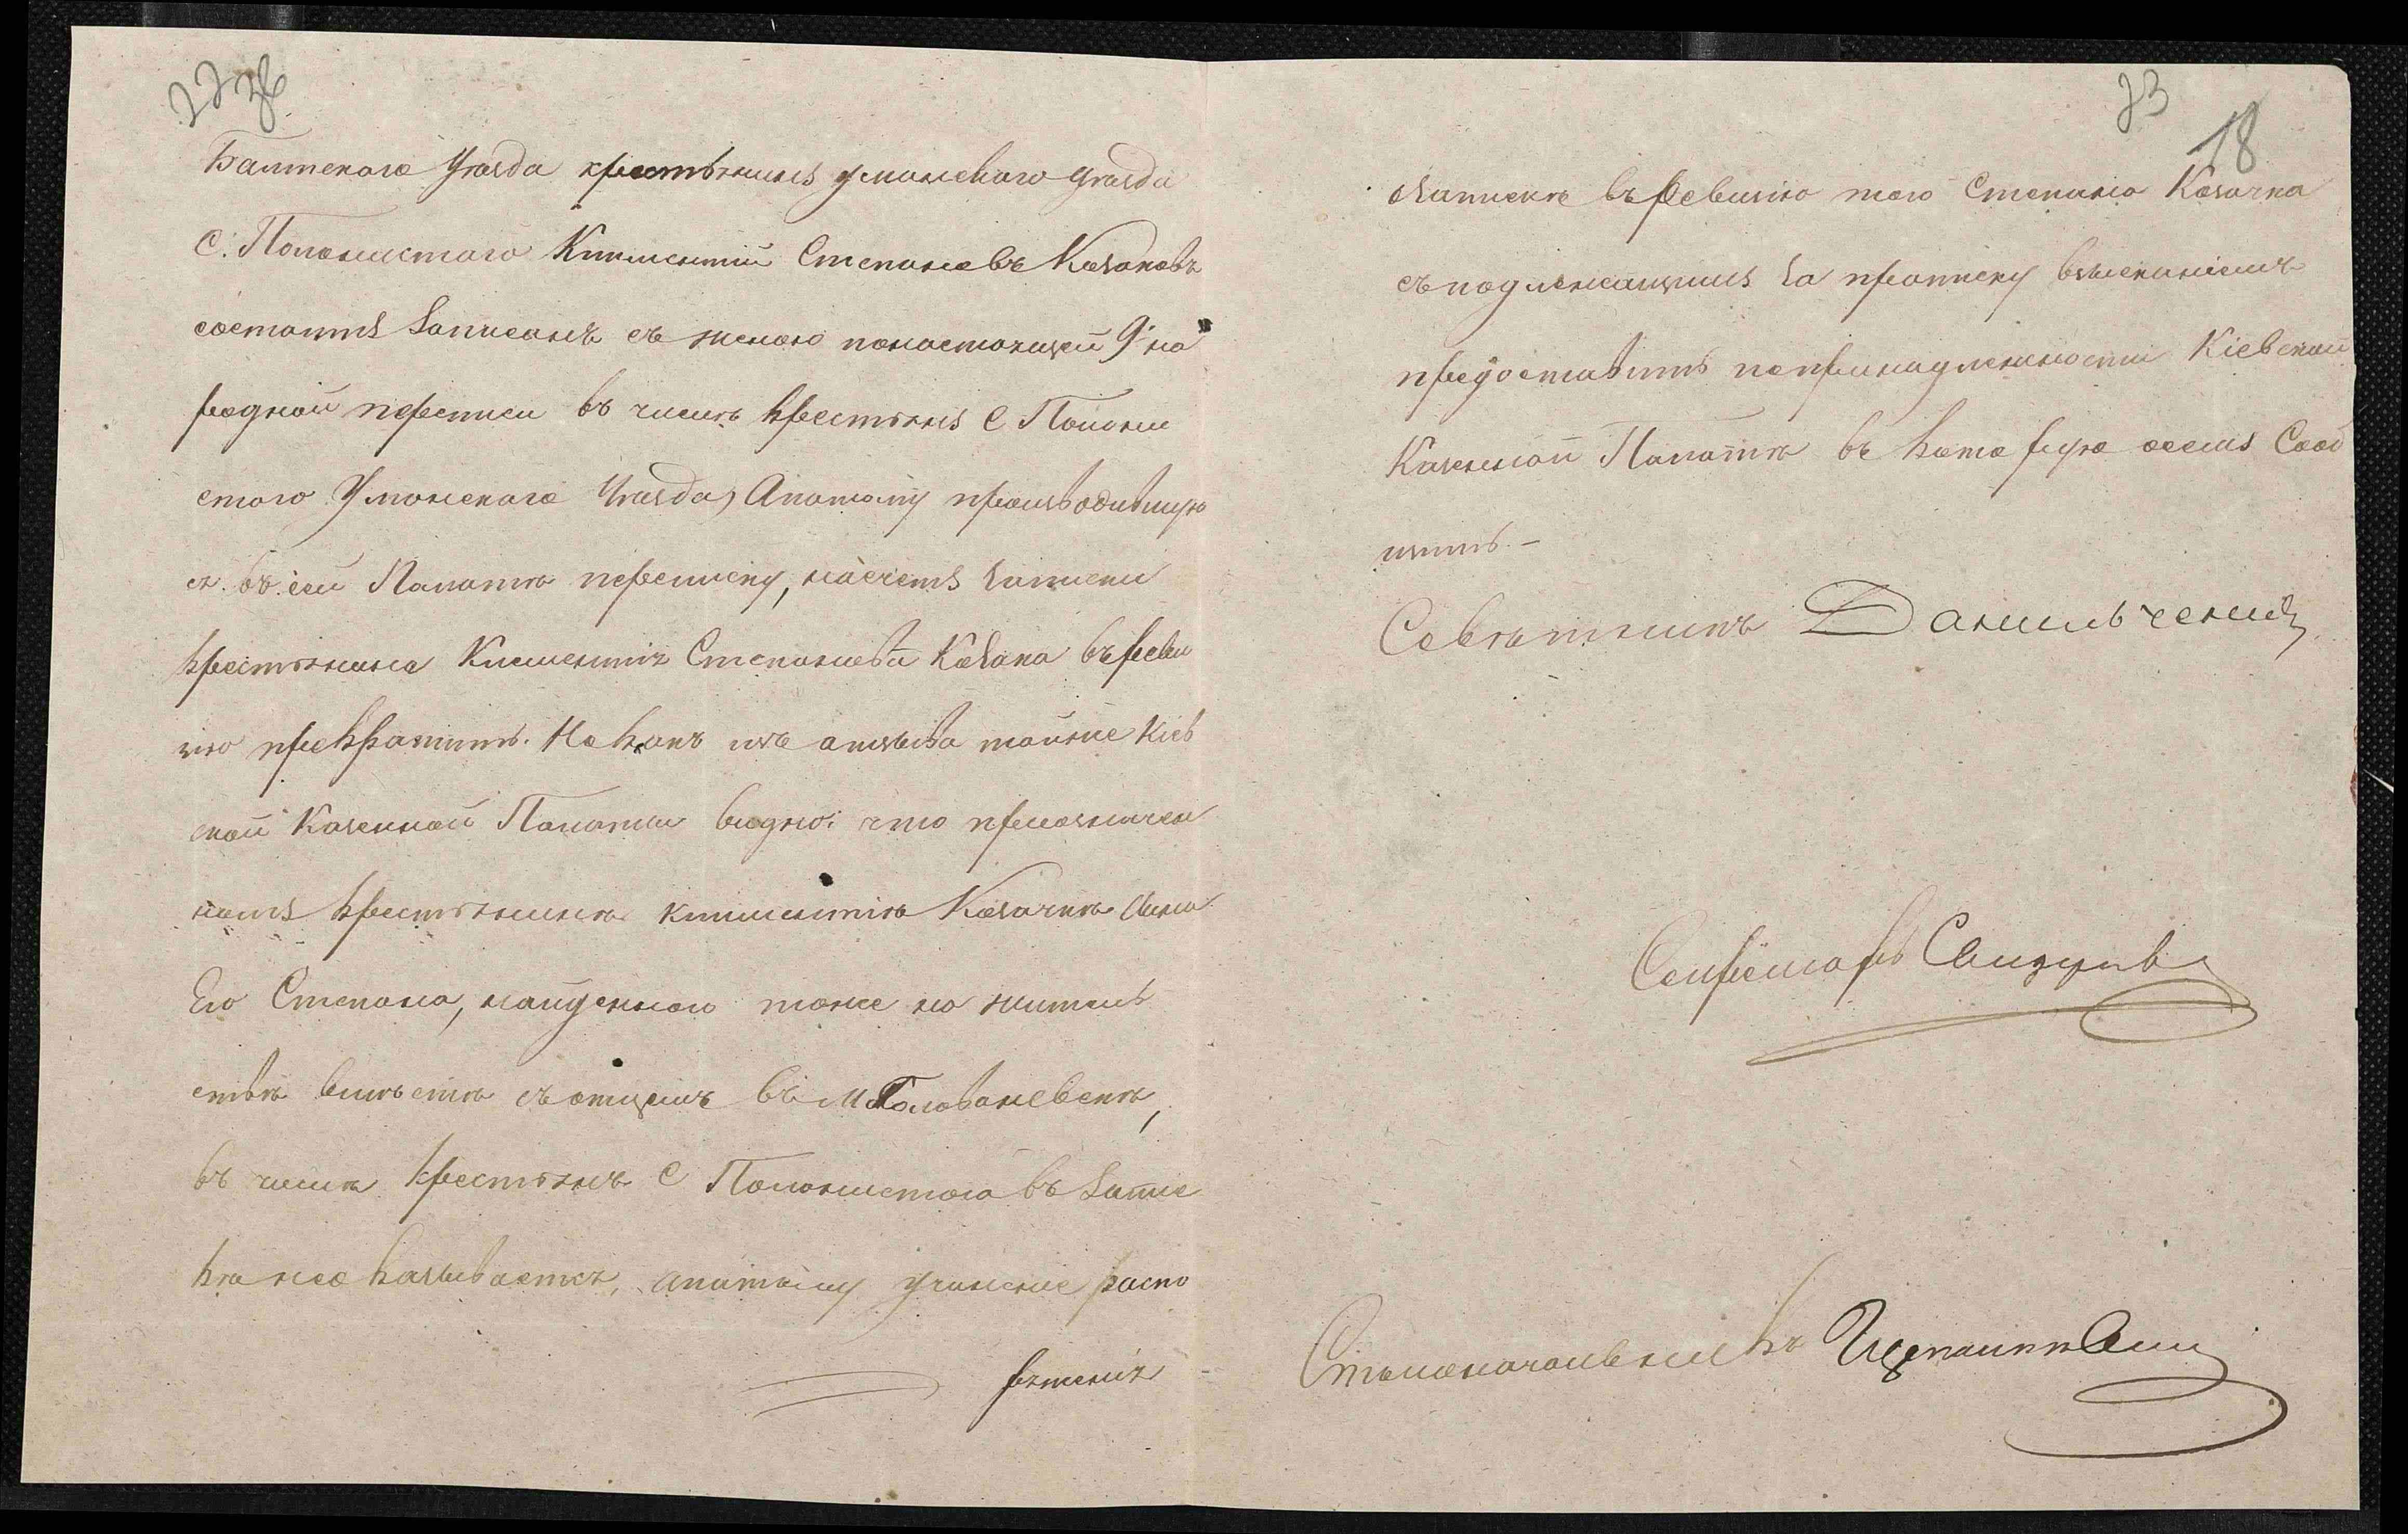 Балтскаго Уѣзда крестьянинъ Уманскаго Уѣзда
С. Полонистаго Климентий Степановъ Казаковъ
состоитъ записанъ съ женою понастоящей 9 на
родной переписи въ числѣ крестьянъ С Полони
стого Уманскаго Уѣзда, Апотому производившую
ся въ сей Палатѣ переписку, насчетъ записки
крестьянина Климентия Степанова Казака въ реви
зію прекратить. Но какъ изъ отзыва тойже Кіев
ской Казенной Палаты видно: что предназначен
наго крестьянина Климентія Казачка сына
Его Степана, найденного тоже на житель
ствѣ вмѣстѣ съ отцемъ въ м Голованевскѣ,
въ числѣ крестьянъ С Полонистого въ запис
кѣ не оказывается, апотому учинение распо
ряженія
23
18
о запискѣ въ ревизію того Степана Казачка
съ подлежащимъ за прописку взысканіемъ
предоставить попринадлежности Кіевской
Казенной Палатѣ въ которую о семъ Сооб
щить. –
Совѣтникъ Данильченко
Секретарь
Столоначальникъ